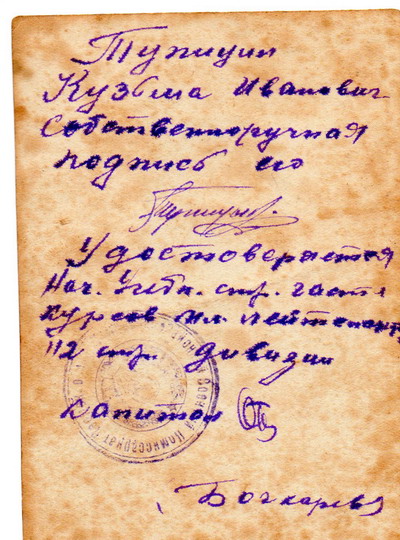 Тупицин
Кузьма Иванович
Собственноручная
подпись его
Удостоверяется
Нач. Учебн. стр. части
курсов мл. лейтенант
112 стр. дивизии
капитан
Бочкарев